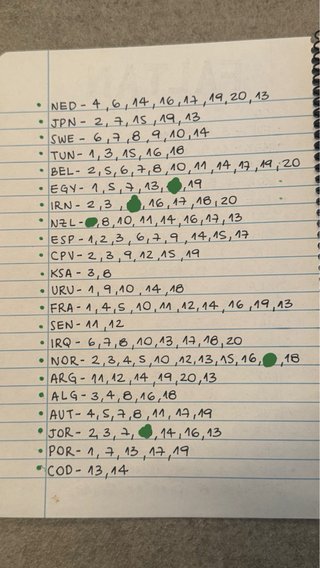 NED - 4, 6, 14, 16, 17, 19, 20, 13
JPN - 2, 7, 15, 19, 13
SWE - 6, 7, 8, 9, 10, 14
TUN - 1, 3, 15, 16, 18
BEL - 2, 5, 6, 7, 8, 10, 11, 14, 17, 19, 20
EGY - 1, 5, 7, 13, , 19
IRN - 2, 3, , 16, 17, 18, 20
NZL - , 8, 10, 11, 14, 16, 17, 13
ESP - 1, 2, 3, 6, 7, 9, 14, 15, 17
CPV - 2, 3, 9, 12, 15, 19
KSA - 3, 8
URU - 1, 9, 10, 14, 18
FRA - 1, 4, 5, 10, 11, 12, 14, 16, 19, 13
SEN - 11, 12
IRQ - 6, 7, 8, 10, 13, 17, 18, 20
NOR - 2, 3, 4, 5, 10, 12, 13, 15, 16, , 18
ARG - 11, 12, 14, 19, 20, 13
ALG - 3, 4, 8, 16, 18
AUT - 4, 5, 7, 8, 11, 17, 19
JOR - 2, 3, 7, , 14, 16, 13
POR - 1, 7, 13, 17, 19
COD - 13, 14